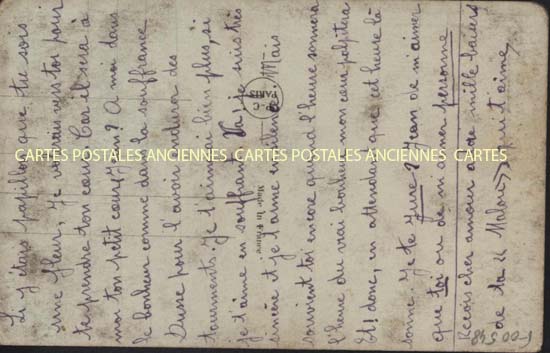 Si j'étais papillon, que tu sois
une fleur, Je volerais vers toi pour
reprendre ton cœur. Car il sera à
moi ton petit cœur Jean? A moi dans
le bonheur comme dans la souffrance
Dusse pour l'avoir endurer des
tourments. Je t'aimerai bien plus, si
je t'aime en souffrant. Va je suis très
sincère et je t'aime en silence. Mais
souvient toi encore quand l'heure sonnera
l'heure du vrai bonheur mon cœur palpitera
Et! donc, en attendant que cet heure là
sonne. Je te Jure? Jean de m'aimer
que toi ou de n'aimer personne
Reçois cher amour de mille baisers
de ta « Malou » qui t'aime,
PARIS
Made in France
CARTES POSTALES ANCIENNES CARTES POSTALES ANCIENNES CARTES
F00548